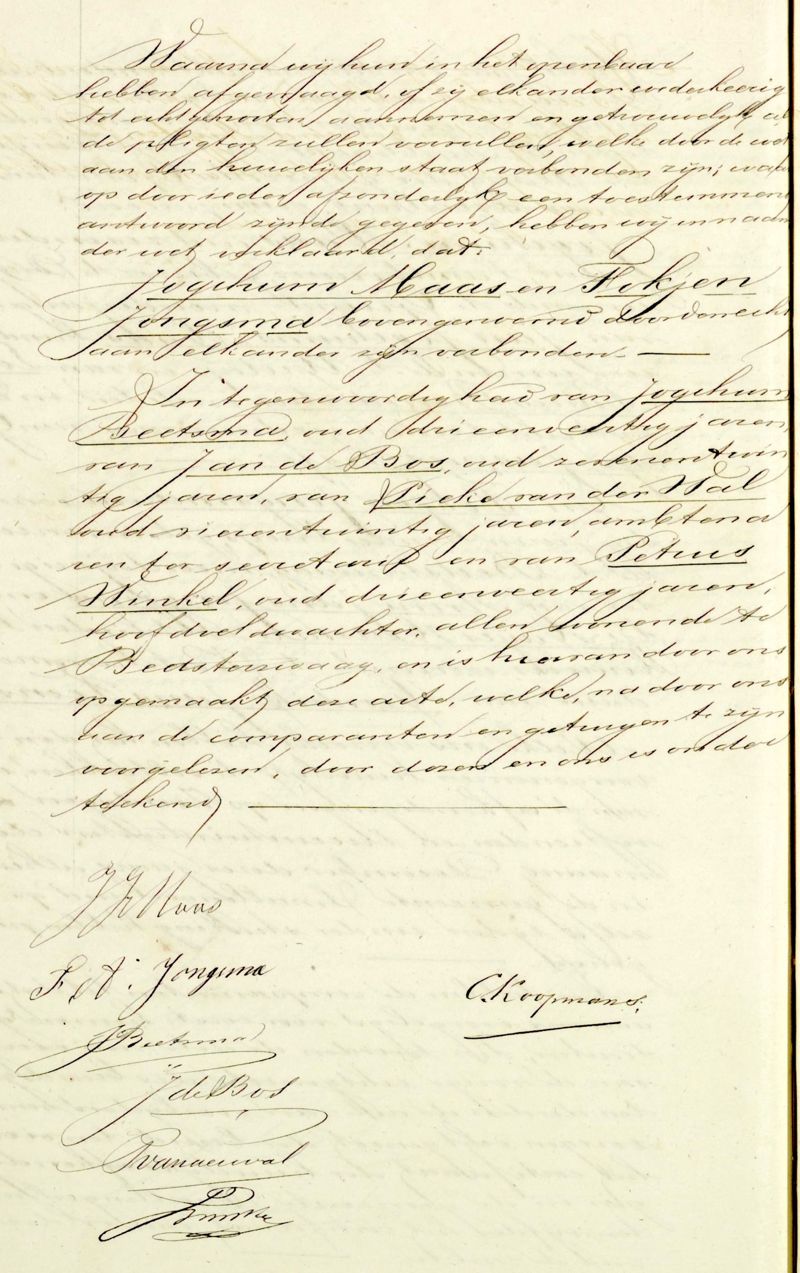 Waarna wij hun in het openbaar
hebben afgevraagd, of zij elkander wederkeerig
tot echtgenooten aannemen en getrouwelijk al
de pligten zullen vervullen, welke door de wet
aan den huwelijken staat verbonden zijn; waar
op door ieder afzonderlijk een toestemmend
antwoord zijnde gegeven, hebben wij in naam
der wet verklaard, dat:
Jogchum Maas en Fokjen
Jongsma bovengenoemd door den echt
aan elkander zijn verbonden. —
In tegenwoordigheid van Jogchum
Beetsma, oud drieentwintig jaren,
van Jan de Bos, oud zevenentwin
tig jaren, van Pieke van der Wal
oud vierentwintig jaren, ambtena
ren ter secretarie en van Petrus
Winkel, oud drieenveertig jaren,
hoofdveldwachter, allen wonende te
Beetsterzwaag, en is hiervan door ons
opgemaakt deze acte, welke, na door ons
aan de comparanten en getuigen te zijn
voorgelezen, door dezen en ons is onder
teekend
J J Maas
F. A. Jongsma
C. Koopmans.
J Beetsma
J de Bos
P van der Wal
P Winkel